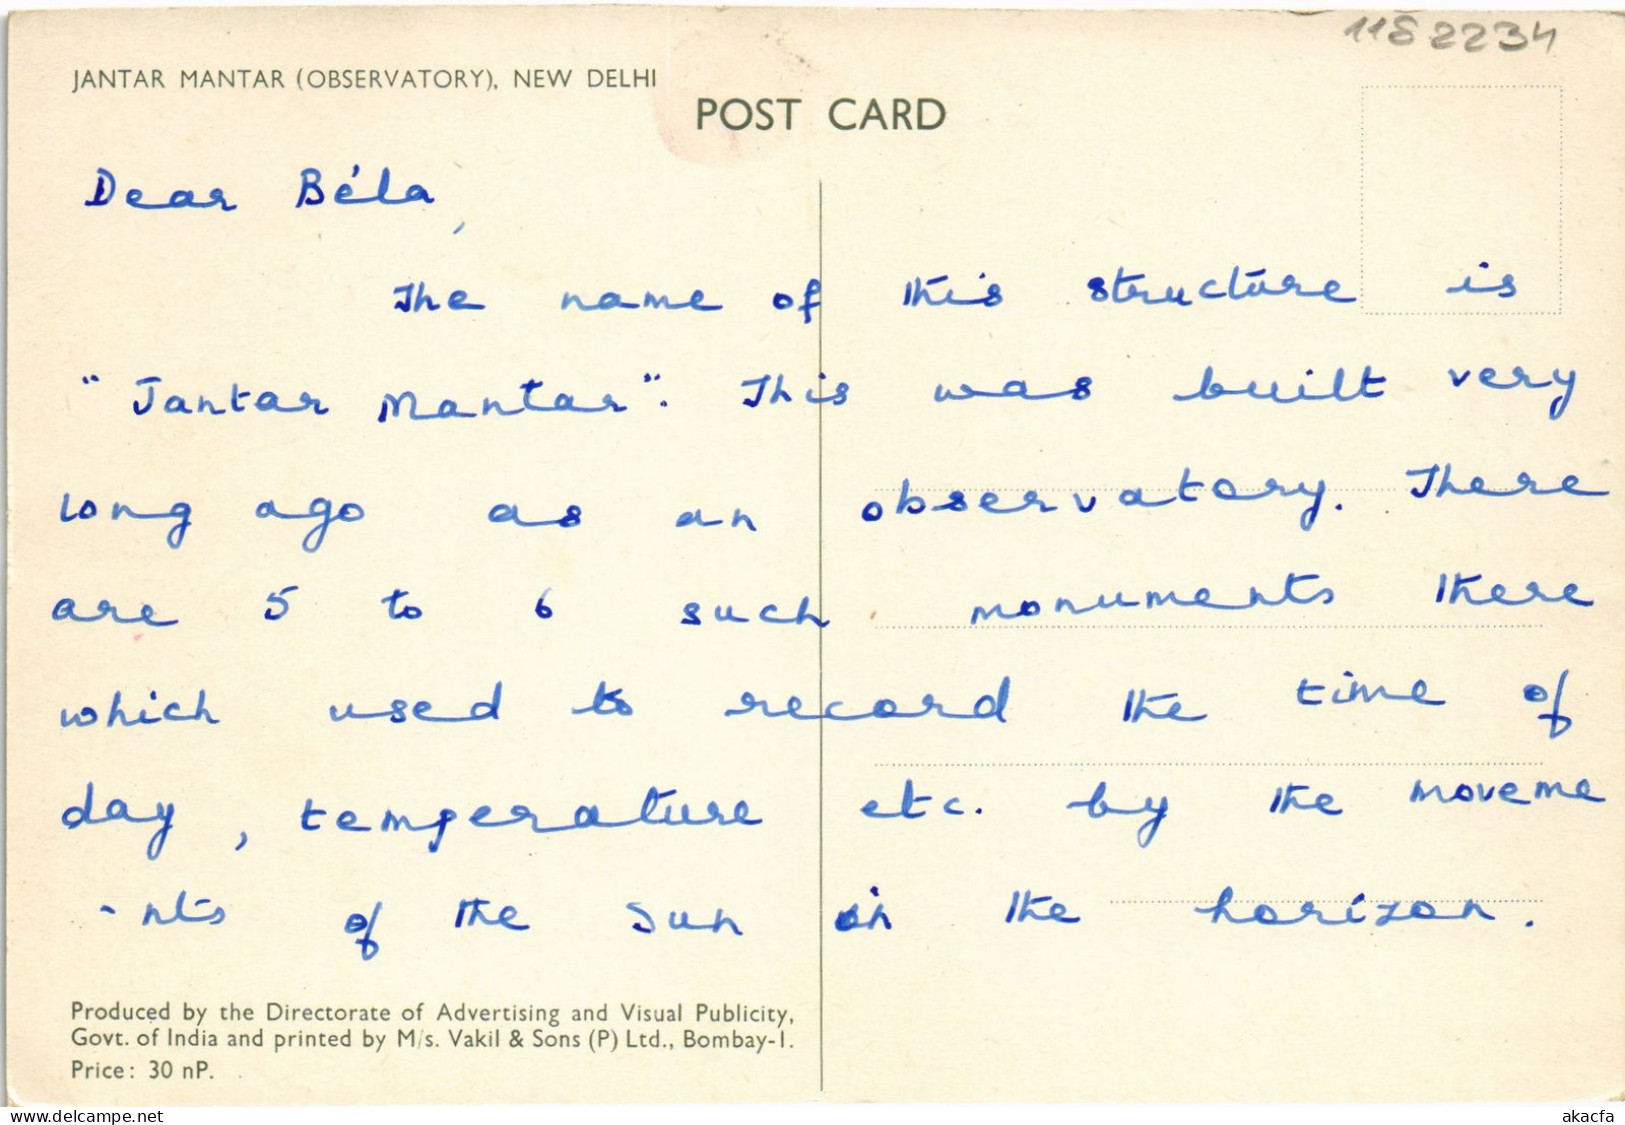 1182234
JANTAR MANTAR (OBSERVATORY), NEW DELHI
POST CARD
Dear Béla,
The name of this structure is
"Jantar Mantar". This was built very
long ago as an observatory. There
are 5 to 6 such monuments there
which used to record the time of
day, temperature etc. by the moveme
-nts of the sun in the horizon.
Produced by the Directorate of Advertising and Visual Publicity,
Govt. of India and printed by M/s. Vakil & Sons (P) Ltd., Bombay-1.
Price: 30 nP.
www.delcampe.net
akacfa